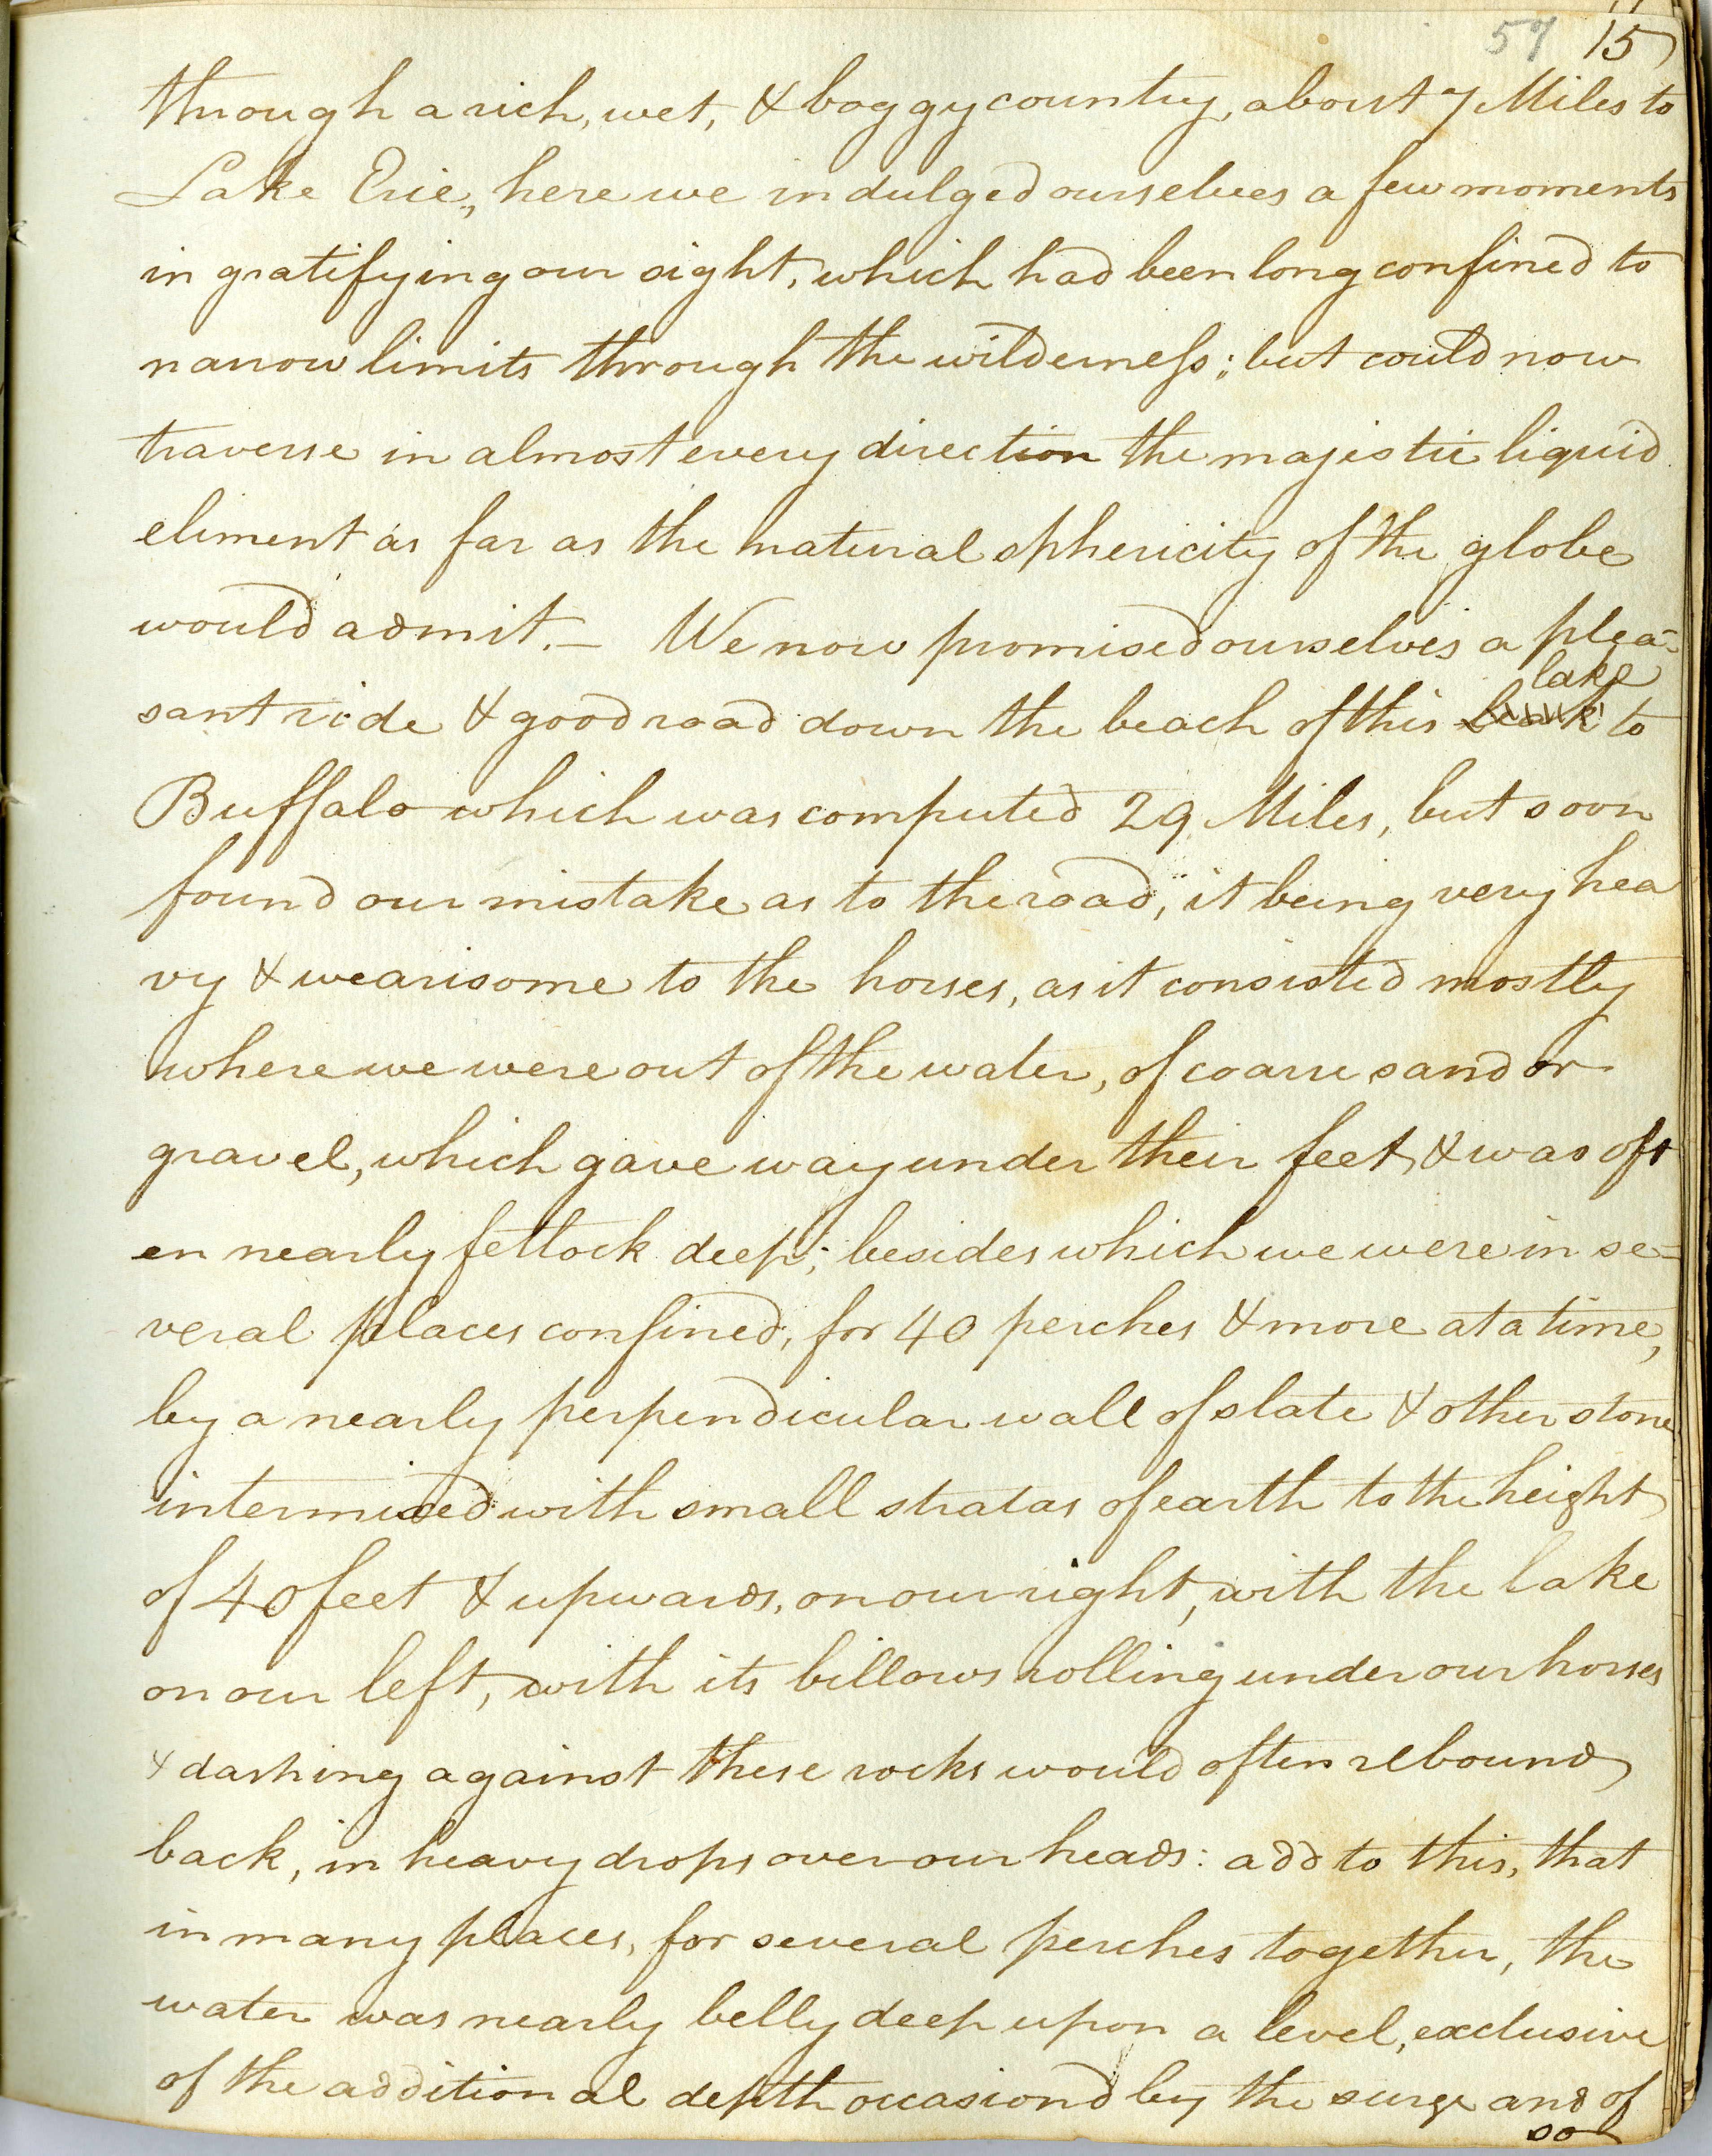 57 15
through a rich, wet, & boggy country, about 7 Miles to
Lake Erie, here we indulged ourselves a few moments
in gratifying our sight, which had been long confined to
narrow limits through the wilderness; but could now
traverse in almost every direction the majestic liquid
eliment as far as the natural sphericity of the globe
would admit.— We now promised ourselves a plea-
lake
sant ride & good road down the beach of this to
Buffalo which was computed 29 Miles, but soon
found our mistake as to the road, it being very hea
vy & wearisome to the horses, as it consisted mostly
where we were out of the water, of coarse sand or
gravel, which gave way under their feet, & was oft
en nearly fetlock deep; besides which we were in se-
veral places confined, for 40 perches & more at a time,
by a nearly perpendicular wall of slate & other stone
intermixed with small stratas of earth to the height
of 40 feet & upwards, on our right, with the lake
on our left, with its billows rolling under our horses
& dashing against these rocks would often rebound
back, in heavy drops over our heads: add to this, that
in many places, for several perches together, the
water was nearly belly deep upon a level, exclusive
of the additional depth occasiond by the surge and of
so